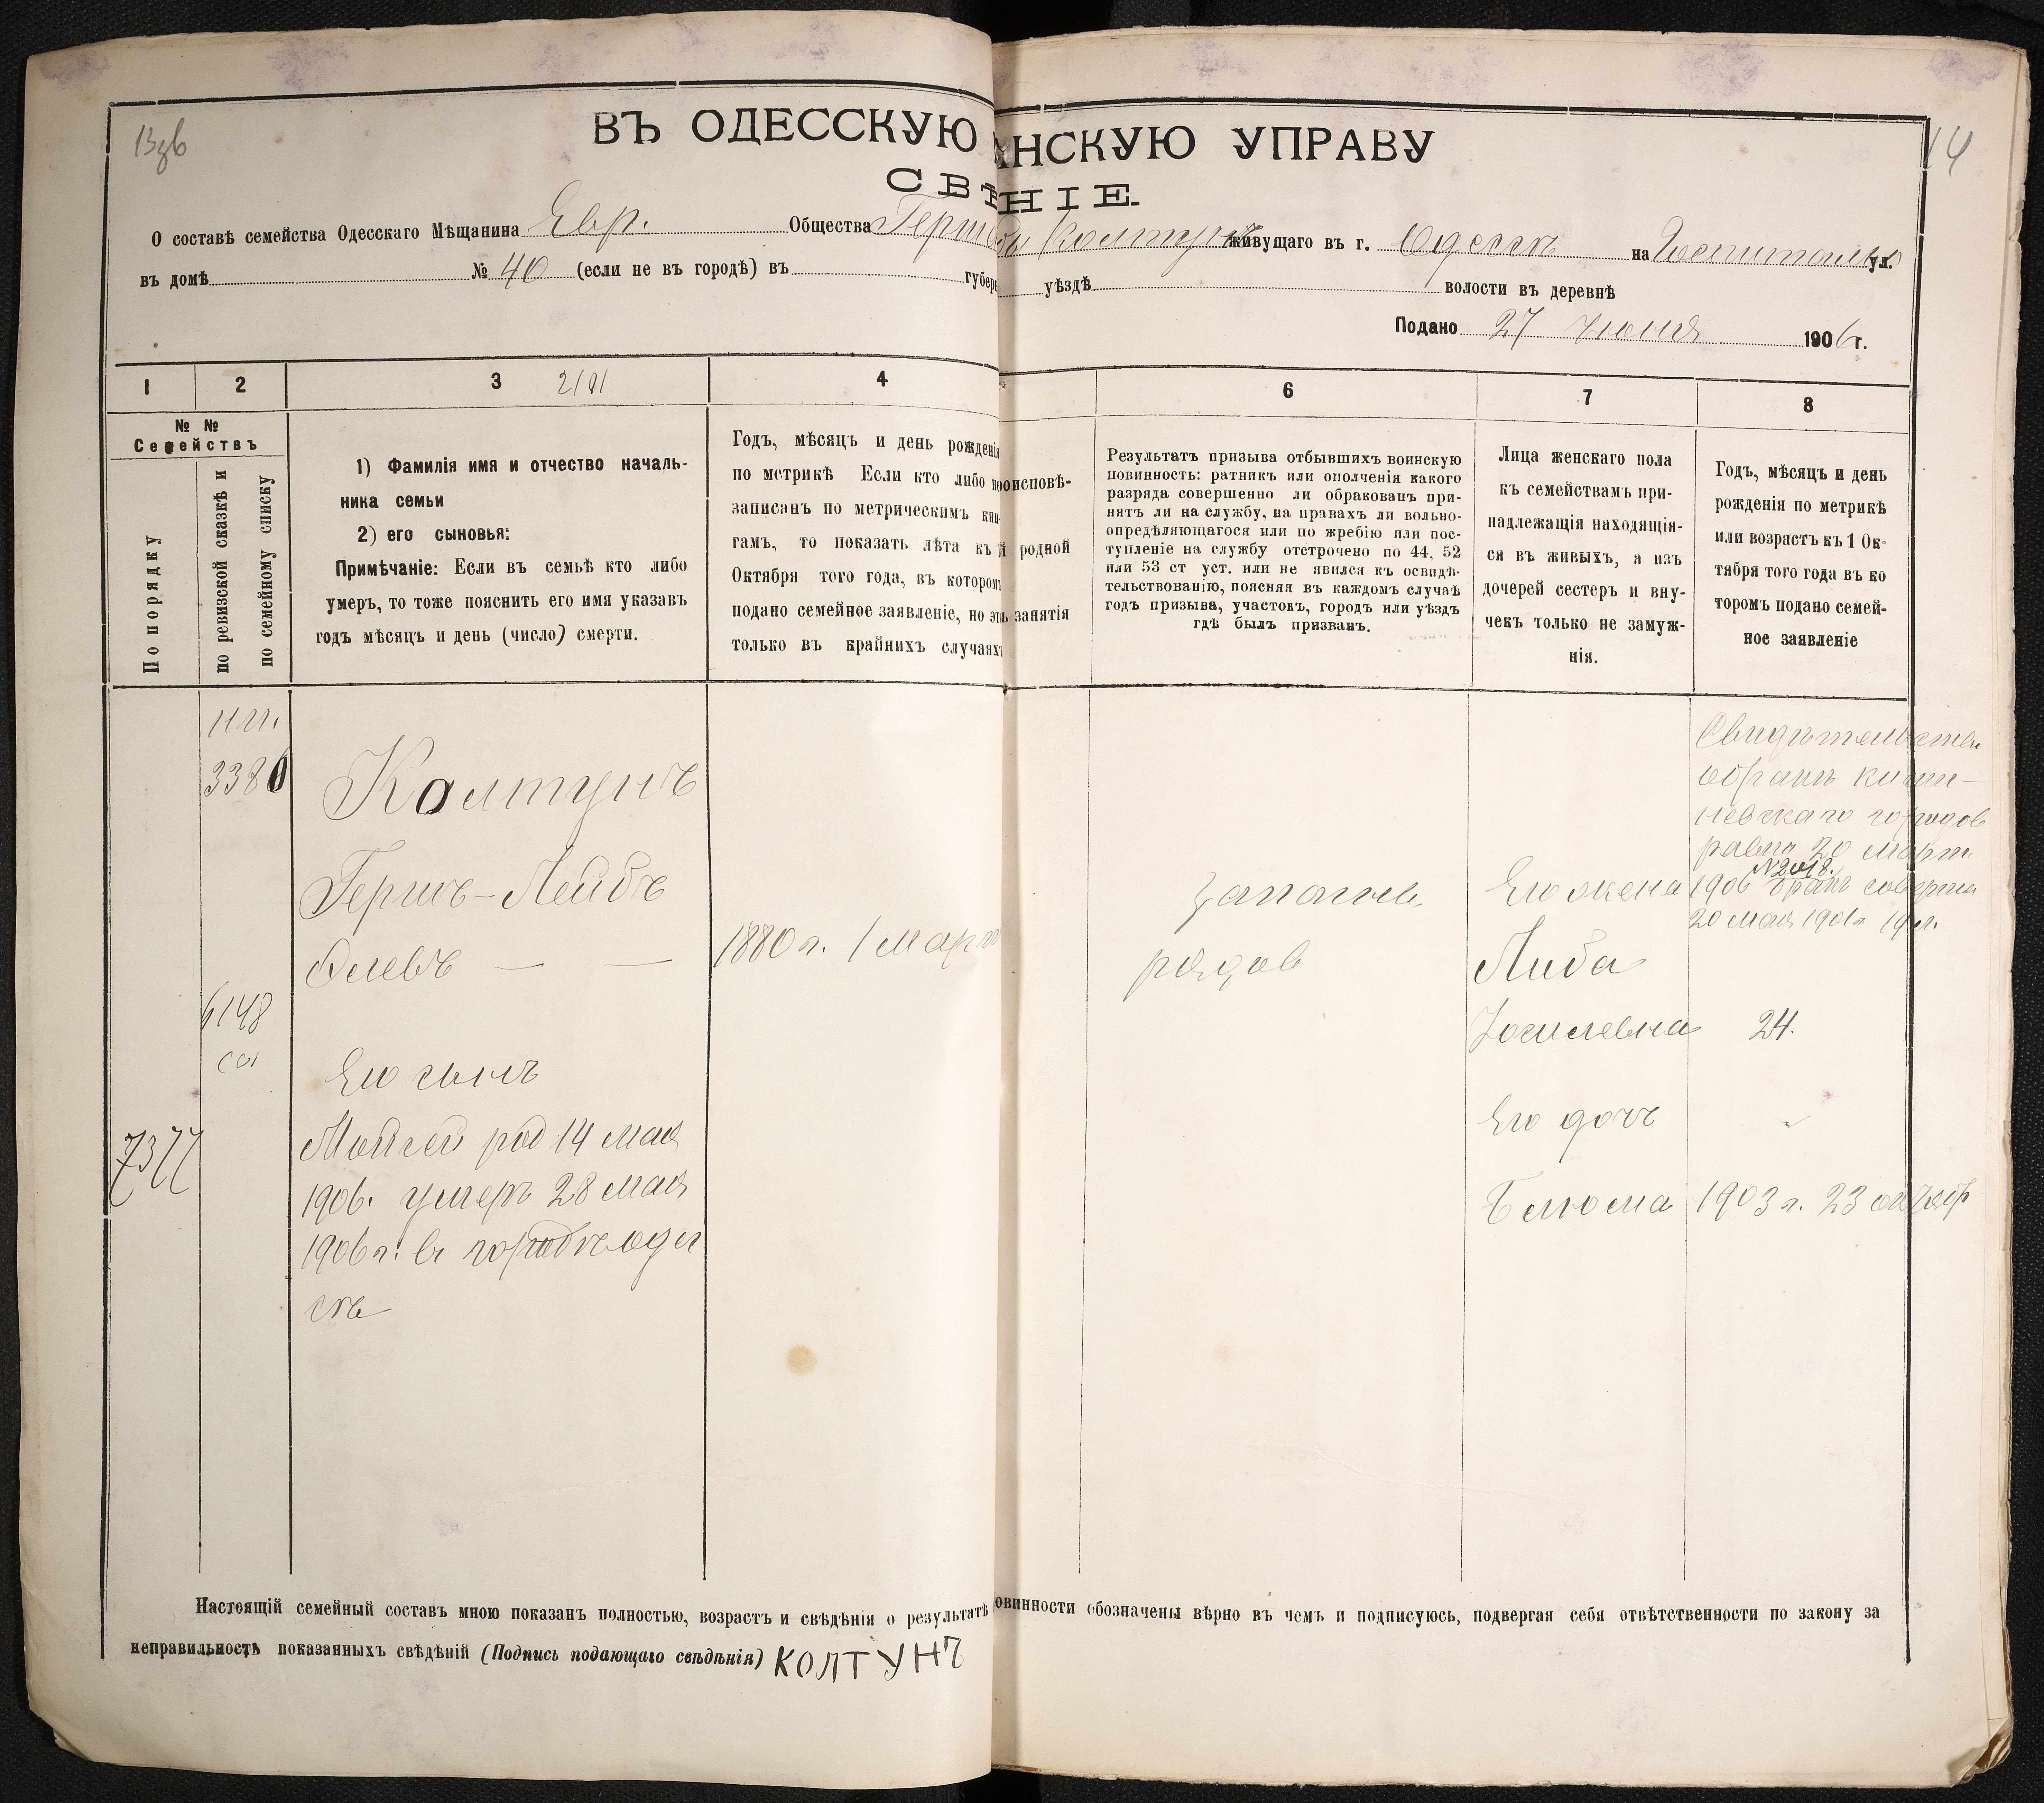 Взв
14
ВЪ ОДЕССКУЮ АНСКУЮ УПРАВУ
СВѢНІЕ.
О составѣ семейства Одесскаго Мѣщанина Евр. Общества Герш Колтунъ живущаго въ г. Одессѣ на Госпитальн ул.
въ домѣ № 40 (если не въ городѣ) въ губерн уѣздѣ волости въ деревнѣ
Подано 27 Июня 1906 г.
1 2 3 2101 4 6 7 8
№ № Семействъ
По порядку
по ревизской сказкѣ и
по семейному списку
1) Фамилія имя и отчество началь-
ника семьи
2) его сыновья:
Примѣчаніе: Если въ семьѣ кто либо
умеръ, то тоже пояснить его имя указавъ
годъ мѣсяцъ и день (число) смерти.
Годъ, мѣсяцъ и день рожденія
по метрикѣ Если кто либо не
записанъ по метрическимъ кни-
гамъ, то показать лѣта къ 1
Октября того года, въ которомъ
подано семейное заявленіе, но это
только въ крайнихъ случаяхъ
роисповѣ-
й родной
занятія
Результатъ призыва отбывшихъ воинскую
повинность: ратникъ или ополченія какого
разряда совершенно ли обракованъ при-
нятъ ли на службу, на правахъ ли вольно-
опредѣляющагося или по жребію или пос-
тупленіе на службу отстрочено по 44, 52
или 53 ст уст. или не явился къ освидѣ-
тельствованію, поясняя въ каждомъ случаѣ
годъ призыва, участокъ, городъ или уѣздъ
гдѣ былъ призванъ.
Лица женскаго пола
къ семействамъ при-
надлежащія находящія-
ся въ живыхъ, а изъ
дочерей сестеръ и вну-
чекъ только не замуж-
нія.
Годъ, мѣсяцъ и день
рожденія по метрикѣ
или возрастъ къ 1 Ок-
тября того года въ ко
торомъ подано семей-
ное заявленіе
3386
Колтунъ
Гершъ-Лейбъ
1880 г. 1 Март
6148
Его сынъ
7377
Мойсей род 14 мая
1906. умеръ 28 мая
1906 г. в городѣ Одес
сѣ
запасн
рядов
Его жена
Либа
24.
Его дочь
Блюма
1903 г. 23 октябр
Свидѣтельство
о бракѣ киши-
невскаго городов
равин 20 март
№2018.
1906 бракъ соверше
20 мая 1901 г. 19 л.
Настоящій семейный составъ мною показанъ полностью, возрастъ и свѣдѣнія о результатѣ овинности обозначены вѣрно въ чемъ и подписуюсь, подвергая себя отвѣтственности по закону за
неправильность показанныхъ свѣдѣній (Подпись подающаго свѣдѣнія) КОЛТУНЪ